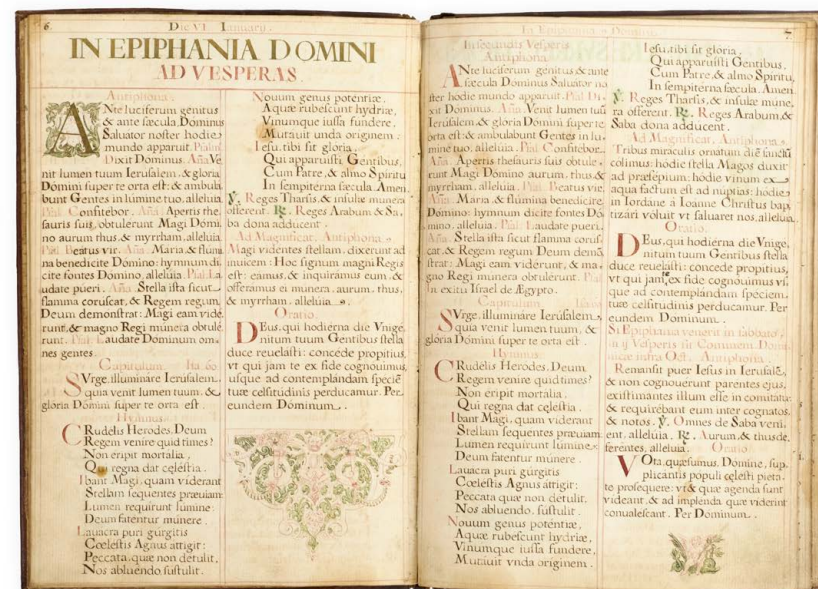 6.
Die VI. Ianuarii.
IN EPIPHANIA DOMINI
AD VESPERAS.
Antiphona.
ANte luciferum genitus
& ante sæcula, Dominus
Saluator noster hodie
mundo apparuit. Psalm.
Dixit Dominus. Aña Ve
nit lumen tuum Ierusalem, & gloria
Domini super te orta est: & ambula
bunt Gentes in lumine tuo, alleluia.
Psal. Confitebor. Aña. Apertis the,
sauris suis, obtulerunt Magi Dómi,
no aurum thus, & myrrham, alleluia
Psal. Beatus vir. Aña. Maria & flúmi
na benedicite Dómino: hymnum di
cite fontes Dómino, alleluia. Psal. La,
udate pueri. Aña. Stella ista sicut
flamma coruscat, & Regem regum,
Deum demonstrat: Magi eam vidé,
runt, & magno Regi múnera obtulé,
runt. Psal. Laudate Dominum om,
nes gentes.
Capitulum. Isa 60
SVrge, illuminare Ierusalem,
quia venit lumen tuum, &
gloria Dómini super te orta est.
Hymnus.
CRudelis Herodes, Deum
Regem venire quid times?
Non eripit mortalia,
Qui regna dat cęlestia.
Ibant Magi, quam viderant
Stellam sequentes præuiam:
Lumen requirunt lumine:
Deum fatentur múnere.
Lauacra puri gúrgitis
Cœlestis Agnus attigit:
Peccata, quæ non detulit,
Nos abluendo, sustulit.
Nouum genus potentiæ,
Aquæ rubescunt hydriæ,
Vinumque iussa fundere,
Mutauit unda originem.
Iesu, tibi sit gloria,
Qui apparuisti Gentibus,
Cum Patre, & almo Spiritu
In sempiterna sæcula. Amen.
℣. Reges Tharsis, & insulæ munera
offerent. ℟. Reges Arabum & Sa,
ba dona adducent.
Ad Magnificat, Antiphona.
Magi videntes stellam, dixerunt ad
inuicem: Hoc signum magni Regis
est: eamus, & inquiramus eum, &
offeramus ei múnera, aurum, thus,
& myrrham, allelúia.
Oratio.
DEus, qui hodiérna die Vnigé,
nitum tuum Gentibus stella
duce reuelasti: concéde propitius,
vt qui jam te ex fide cognouimus,
usque ad contemplándam speciē
tuæ celsitúdinis perducamur. Per
eundem Dóminum.
In Epiphania Domini.
7
In secundis Vesperis
Antiphona.
ANte luciferum génitus & ante
sæcula Dominus Saluátor no
ster hodie mundo apparuit. Psal. Di,
xit Dominus. Aña. Venit lumen tuū
Ierusalem, & gloria Domini super te
orta est: & ambulabunt Gentes in lu,
mine tuo, alleluia. Psal. Confitebor.
Aña. Apertis thesauris suis obtule,
runt Magi Dómino aurum, thus, &
myrrham, alleluia. Psal. Beatus vir.
Aña. Maria & flúmina benedicite
Dómino: hymnum dicite fontes Dó
mino, alleluia. Psal. Laudate pueri.
Aña. Stella ista sicut flamma corus,
cat, & Regem regum Deum demō
strat: Magi eam vidérunt, & ma,
gno Regi munera obtulérunt. Psal.
In exitu Israel de Ægypto.
Capitulum.
SVrge, illumináre Ierúsalem,
quia venit lumen tuum, &
glória Dómini super te orta est.
Hymnus.
CRudelis Herodes, Deum
Regem venire quid times?
Non eripit mortalia,
Qui regna dat cęlestia.
Ibant Magi, quam viderant
Stellam sequentes præuiam:
Lumen requirunt lumine:
Deum fatentur múnere.
Lauacra puri gúrgitis
Cœlestis Agnus attigit:
Peccata quæ non detulit,
Nos abluendo, sustulit.
Nouum genus potentiæ,
Aquæ rubescunt hydriæ,
Vinumque iussa fundere,
Mutauit vnda originem.
Iesu, tibi sit glória,
Qui apparuisti Gentibus,
Cum Patre, & almo Spiritu,
In sempiterna sæcula. Amen.
℣. Reges Tharsis, & insulæ múne,
ra offerent. ℟. Reges Arabum, &
Saba dona adducent.
Ad Magnificat, Antiphona.
Tribus miraculis ornatum diē sanctū
cólimus: hódie stella Magos duxit
ad præsépium: hódie vinum ex
aqua factum est ad nuptias: hódie
in Iordane à Ioanne Christus bap,
tizári vóluit vt saluaret nos, allelúia.
Oratio.
DEus, qui hodiérna die Vnigé,
nitum tuum Gentibus stella
duce reuelásti: concede propitius,
vt qui jam te ex fide cognouimus vs,
que ad contemplándam spéciem,
tuæ celsitudinis perducamur. Per
eundem Dominum.
Si Epiphania venerit in sabbato,
in ij Vesperis fit Commem. Domi
nicæ infra Oct. Antiphona.
Remansit puer Iesus in Ierusalē,
& non cognouerunt parentes ejus,
existimantes illum esse in comitatu:
& requirébant eum inter cognatos,
& notos. ℣. Omnes de Saba veni,
ent, allelúia. ℟. Aurum, & thus de,
ferentes, alleluia. Oratio.
VOta, quæsumus, Domine, sup,
plicantis populi cęlesti pieta,
te prosequere: vt & quæ agenda sunt
videant, & ad implenda, quæ viderint
conualescant. Per Dóminum.